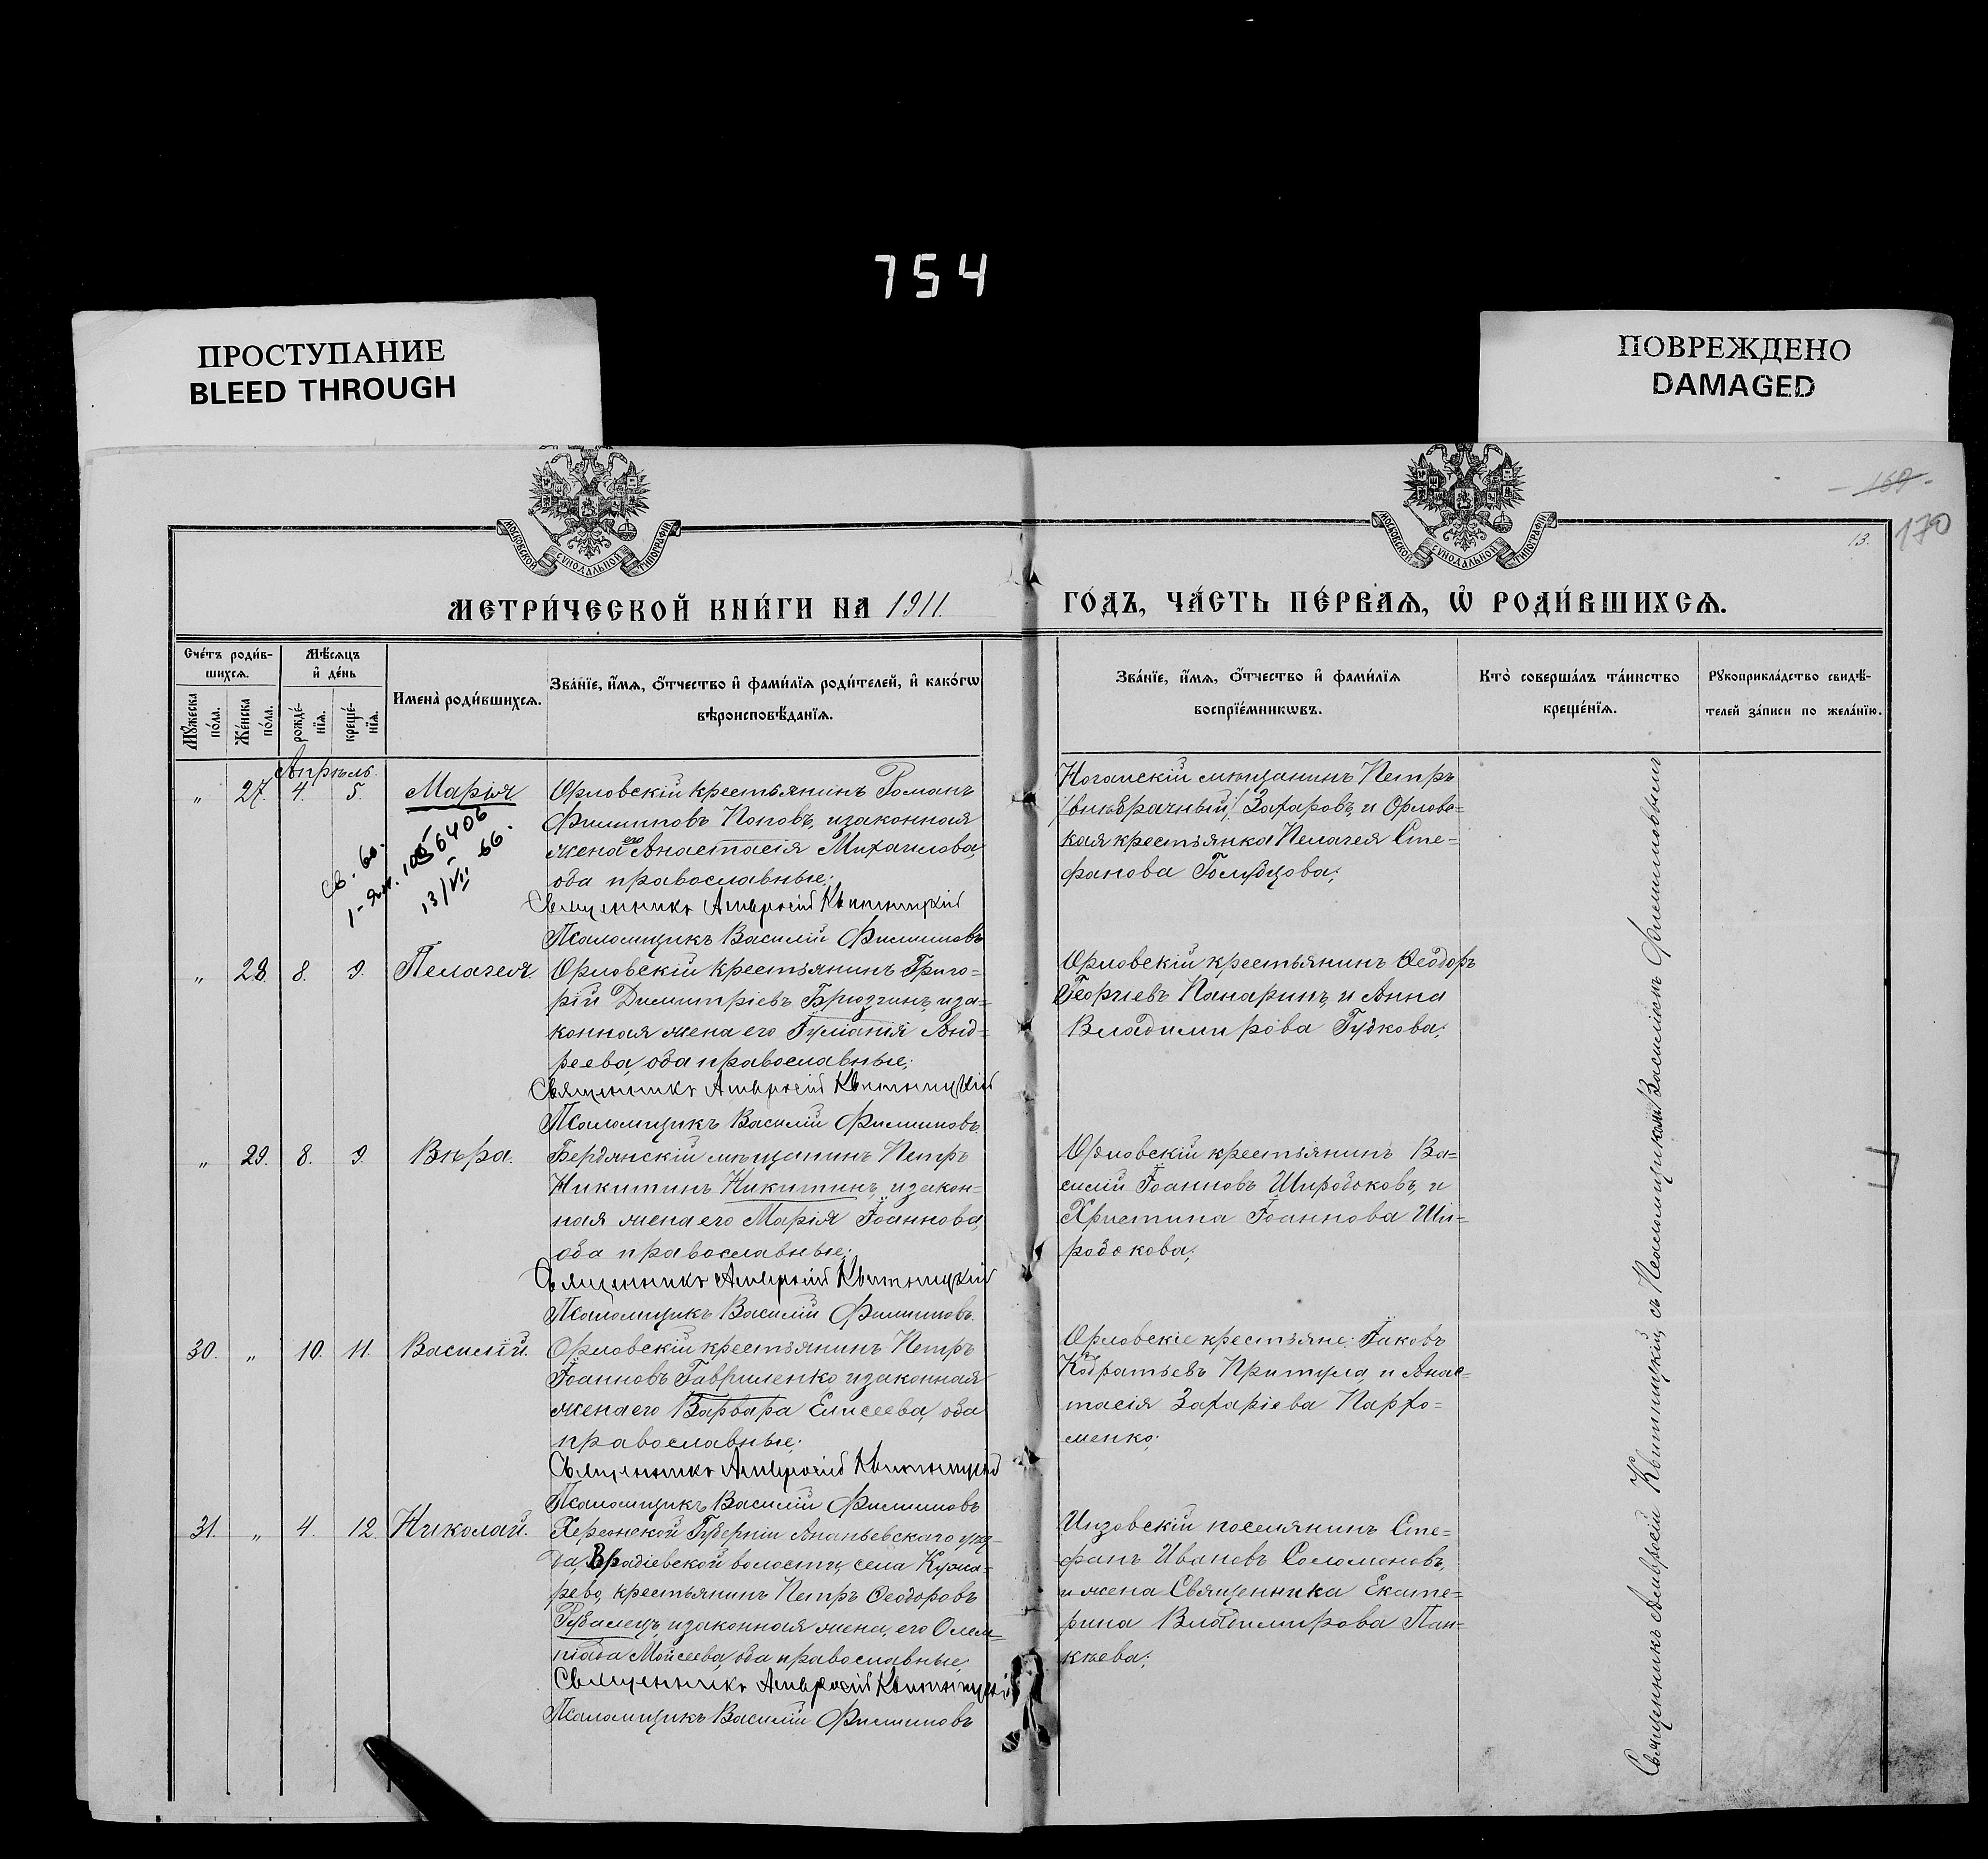 754
ПРОСТУПАНИЕ
BLEED THROUGH
ПОВРЕЖДЕНО
DAMAGED
МОСКОВСКОЙ СѴНОДАЛЬНОЙ ТИПОГРАФІИ
МОСКОВСКОЙ СѴНОДАЛЬНОЙ ТИПОГРАФІИ
- 169 -
170
13.
МЕТРИ́ЧЕСКОЙ КНИ́ГИ НА 1911.
ГО́ДЪ, ЧА́СТЬ ПЕ́РВАѦ, Ѡ РОДИ́ВШИХСѦ.
Сче́тъ роди́в-
шихсѧ.
Мꙋ́жеска
по́ла.
Же́нска
по́ла.
Мѣ́сѧцъ
и҆ де́нь
рожде́-
нїѧ.
креще́-
нїѧ.
Имена̀ роди́вшихсѧ.
Зва́нїе, и҆́мѧ, ѻ҆́тчество и҆ фами́лїѧ роди́телей, и҆ како́гѡ
вѣроисповѣ́данїѧ.
Зва́нїе, и҆́мѧ, ѻ҆́тчество и҆ фами́лїѧ
воспрїе́мникѡвъ.
Кто̀ соверша́лъ та́инство
креще́нїѧ.
Рꙋкоприкла́дство свидѣ́-
телей за́писи по жела́нїю.
Апрѣль.
„ 27. 4. 5. Марія
Орловскій крестьянинъ Романъ
Филипповъ Поповъ, и законная
жена его Анастасія Михаилова,
оба православные;
Священникъ Амвросій Квитницкій
Псаломщикъ Василій Филипповъ
Ногайскій мѣщанинъ Петръ
/внѣбрачный/ Захаровъ, и Орловс=
кая крестьянка Пелагея Сте=
фанова Голубцова;
св. во.
13/VII 66.
„ 28. 8. 9. Пелагея
Орловскій крестьянинъ Григо=
рій Димитріевъ Брюзгинъ, и за=
конная жена его Гуманія Анд=
реева, оба православные;
Священникъ Амвросій Квитницкій
Псаломщикъ Василій Филипповъ.
Орловскій крестьянинъ Ѳеодоръ
Георгіевъ Панаринъ, и Анна
Владимирова Гудкова;
„ 29. 8. 9. Вѣра.
Бердянскій мѣщанинъ Петръ
Никитинъ Никитинъ, и закон=
ная жена его Марія Іоаннова,
оба православные;
Священникъ Амвросій Квитницкій
Псаломщикъ Василій Филипповъ.
Орловскій крестьянинъ Ва=
силій Іоанновъ Широбоковъ, и
Христина Іоаннова Ши=
робокова;
30. „ 10. 11. Василій.
Орловскій крестьянинъ Петръ
Іоанновъ Гавриленко и законная
жена его Варвара Елисеева, оба
православные;
Священникъ Амвросій Квитницкій
Псаломщикъ Василій Филипповъ
Орловскіе крестьяне: Іаковъ
Кодратьевъ Притула, и Анас=
тасія Захаріева Пархо=
менко;
31. „ 4. 12. Николай.
Херсонской Губерніи Ананьевскаго уѣз=
да, Врадіевской волости, села Кума=
рево, крестьянинъ Петръ Ѳеодоровъ
Рубалецъ, и законная жена, его Олим=
піада Моисеева, оба православные;
Священникъ Амвросій Квитницкій
Псаломщикъ Василій Филипповъ
Инзовскій поселянинъ Сте=
фанъ Ивановъ Соломоновъ,
и жена Священника Екате=
рина Владимирова Пан=
кѣева;
Священникъ Амвросій Квитницкій, съ Псаломщикомъ Василіемъ Филипповымъ